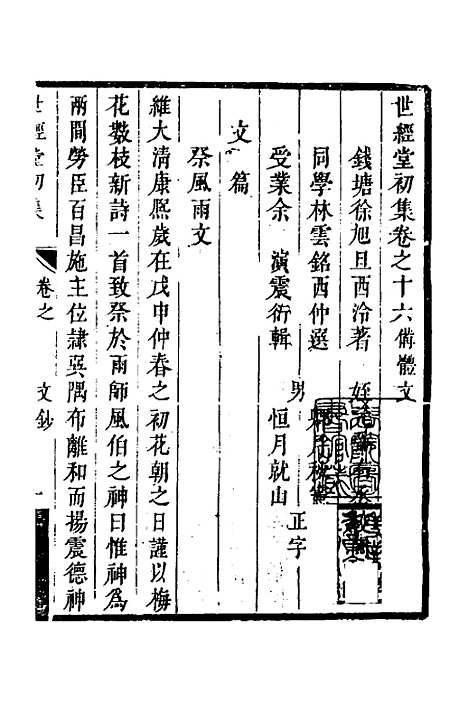 世經堂初集卷之十六備體文
錢塘徐旭旦西泠著　姪
同學林雲銘西仲選
受業余　演震衍輯　男　恒月就山　正字
文篇
祭風雨文
維大清康熙歲在戊申仲春之初花朝之日謹以梅
花數枝新詩一首致祭於雨師風伯之神曰惟神為
兩間勞臣百昌施主位隷巽隅布離和而揚震德神
世經堂初集　卷之　文鈔　一